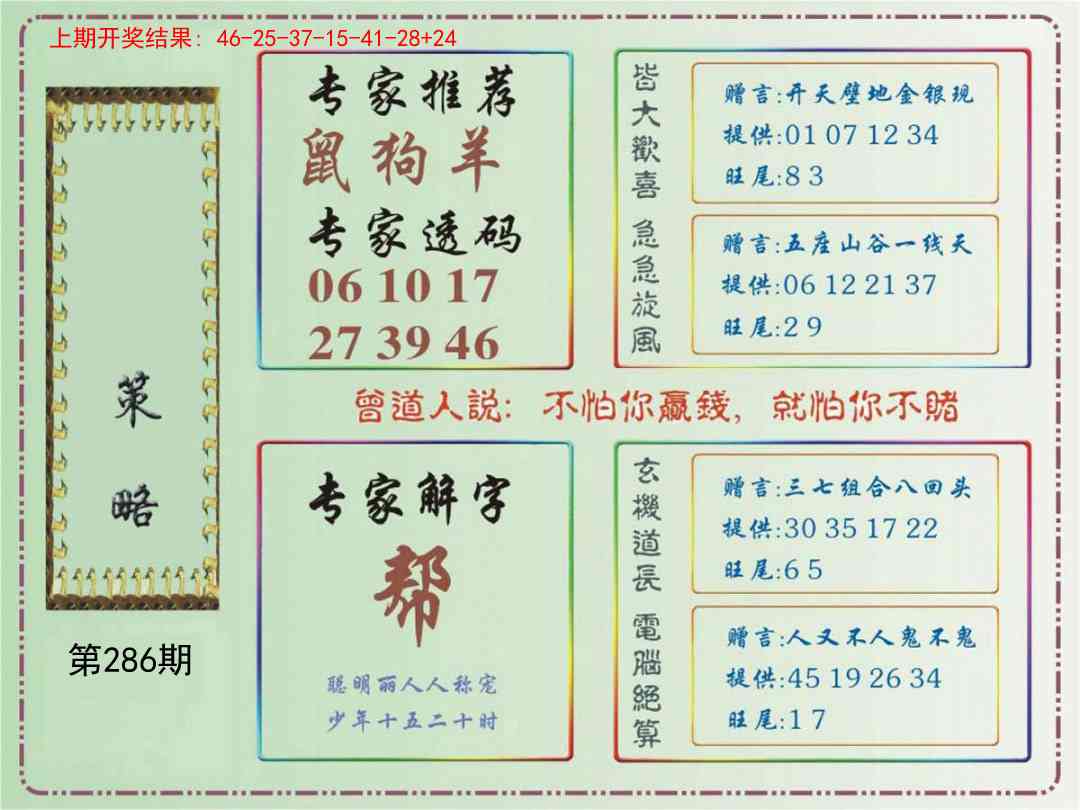 上期开奖结果: 46-25-37-15-41-28+24
策略
第286期
专家推荐
鼠狗羊
专家透码
06 10 17
27 39 46
皆大歡喜
赠言:开天壁地金银现
提供:01 07 12 34
旺尾:8 3
急急旋風
赠言:五座山谷一线天
提供:06 12 21 37
旺尾:2 9
曾道人説: 不怕你赢錢, 就怕你不賭
专家解字
帮
聪明丽人人称宠
少年十五二十时
玄機道長
赠言:三七组合八回头
提供:30 35 17 22
旺尾:6 5
電腦絕算
赠言:人又不人鬼不鬼
提供:45 19 26 34
旺尾:1 7